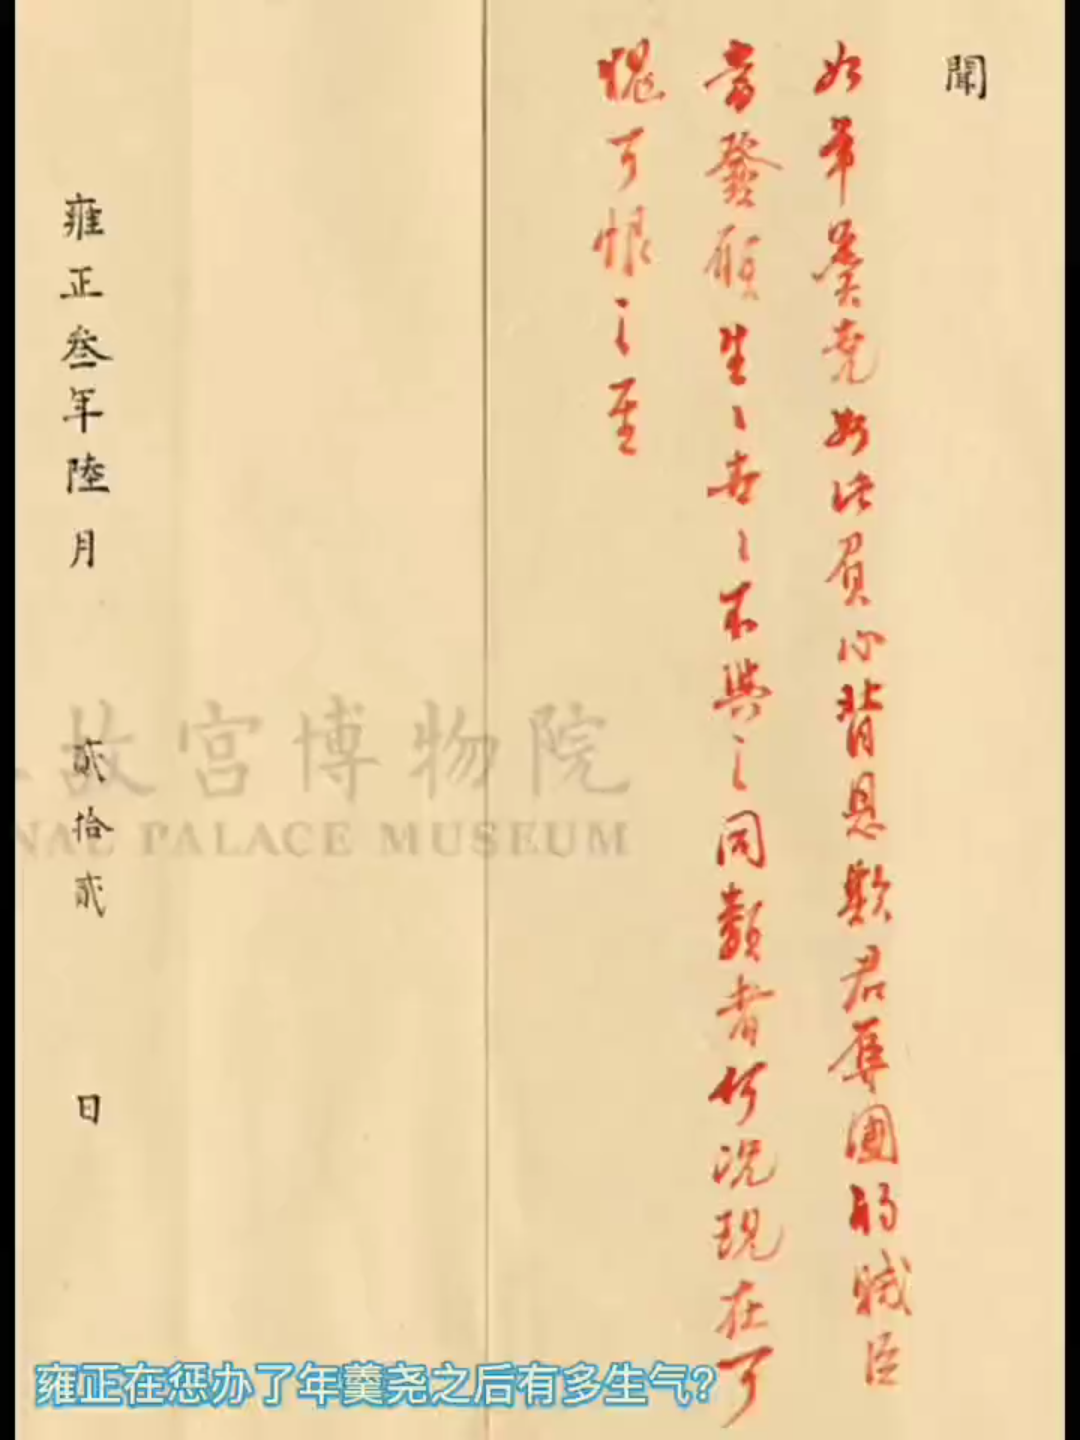 聞
如年羹堯如此負心背恩欺君辱國的賊臣
當發願生々世々不與之同類者何況現在可
愧可恨之至
雍正叁年陸月 貳拾貳 日
故宮博物院
NAL PALACE MUSEUM
雍正在惩办了年羹尧之后有多生气?